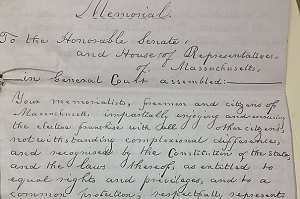 Memorial.
To the Honorable Senate,
and House of Representatives,
of Massachusetts,
in General Court assembled:—
Your memorialists, freemen and citizens of
Massachusetts, impartially enjoying and
the elective franchise with all other citizens,
notwithstanding complexional differences,
and recognized by the Constitution of the State
and the laws thereof, as entitled to
equal rights and privileges, and to a
common protection, respectfully represents